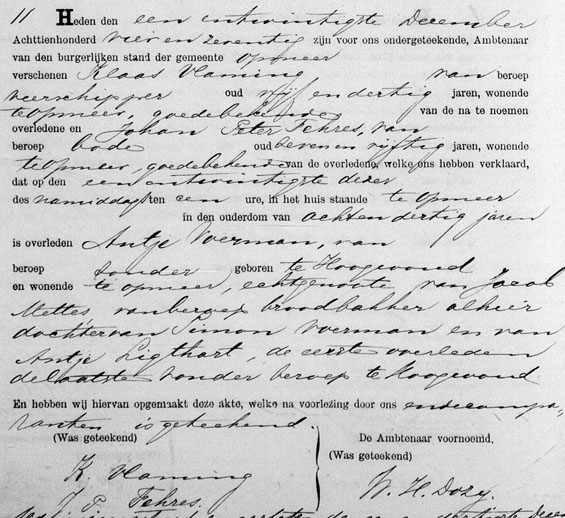 11 Heden den een entwintigste December
Achttienhonderd vier en zeventig zijn voor ons ondergeteekende, Ambtenaar
van den burgerlijken stand der gemeente Opmeer
verschenen Klaas Vlaming van beroep
veerschipper oud vijf en dertig jaren, wonende
te Opmeer, goedebekende van de na te noemen
overledene en Johan Peter Fehres, van
beroep bode oud zeven en vijftig jaren, wonende
te Opmeer, goedebekende van de overledene, welke ons hebben verklaard,
dat op den een entwintigste dezer
des namiddags ten een ure, in het huis staande te Opmeer
in den ouderdom van acht en dertig jaren
is overleden Antje Voerman, van
beroep zonder geboren te Hoogwoud
en wonende te Opmeer, echtgenoote van Jacob
Mettes, van beroep broodbakker alhier
dochter van Simon Voerman en van
Antje Ligthart, de eerste overleden
de laatste zonder beroep te Hoogwoud
En hebben wij hiervan opgemaakt deze akte, welke na voorlezing door ons en de compa
ranten is geteekend.
(Was geteekend) De Ambtenaar voornoemd.
(Was geteekend)
K. Vlaming
J. P. Fehres. W. H. Dozy.